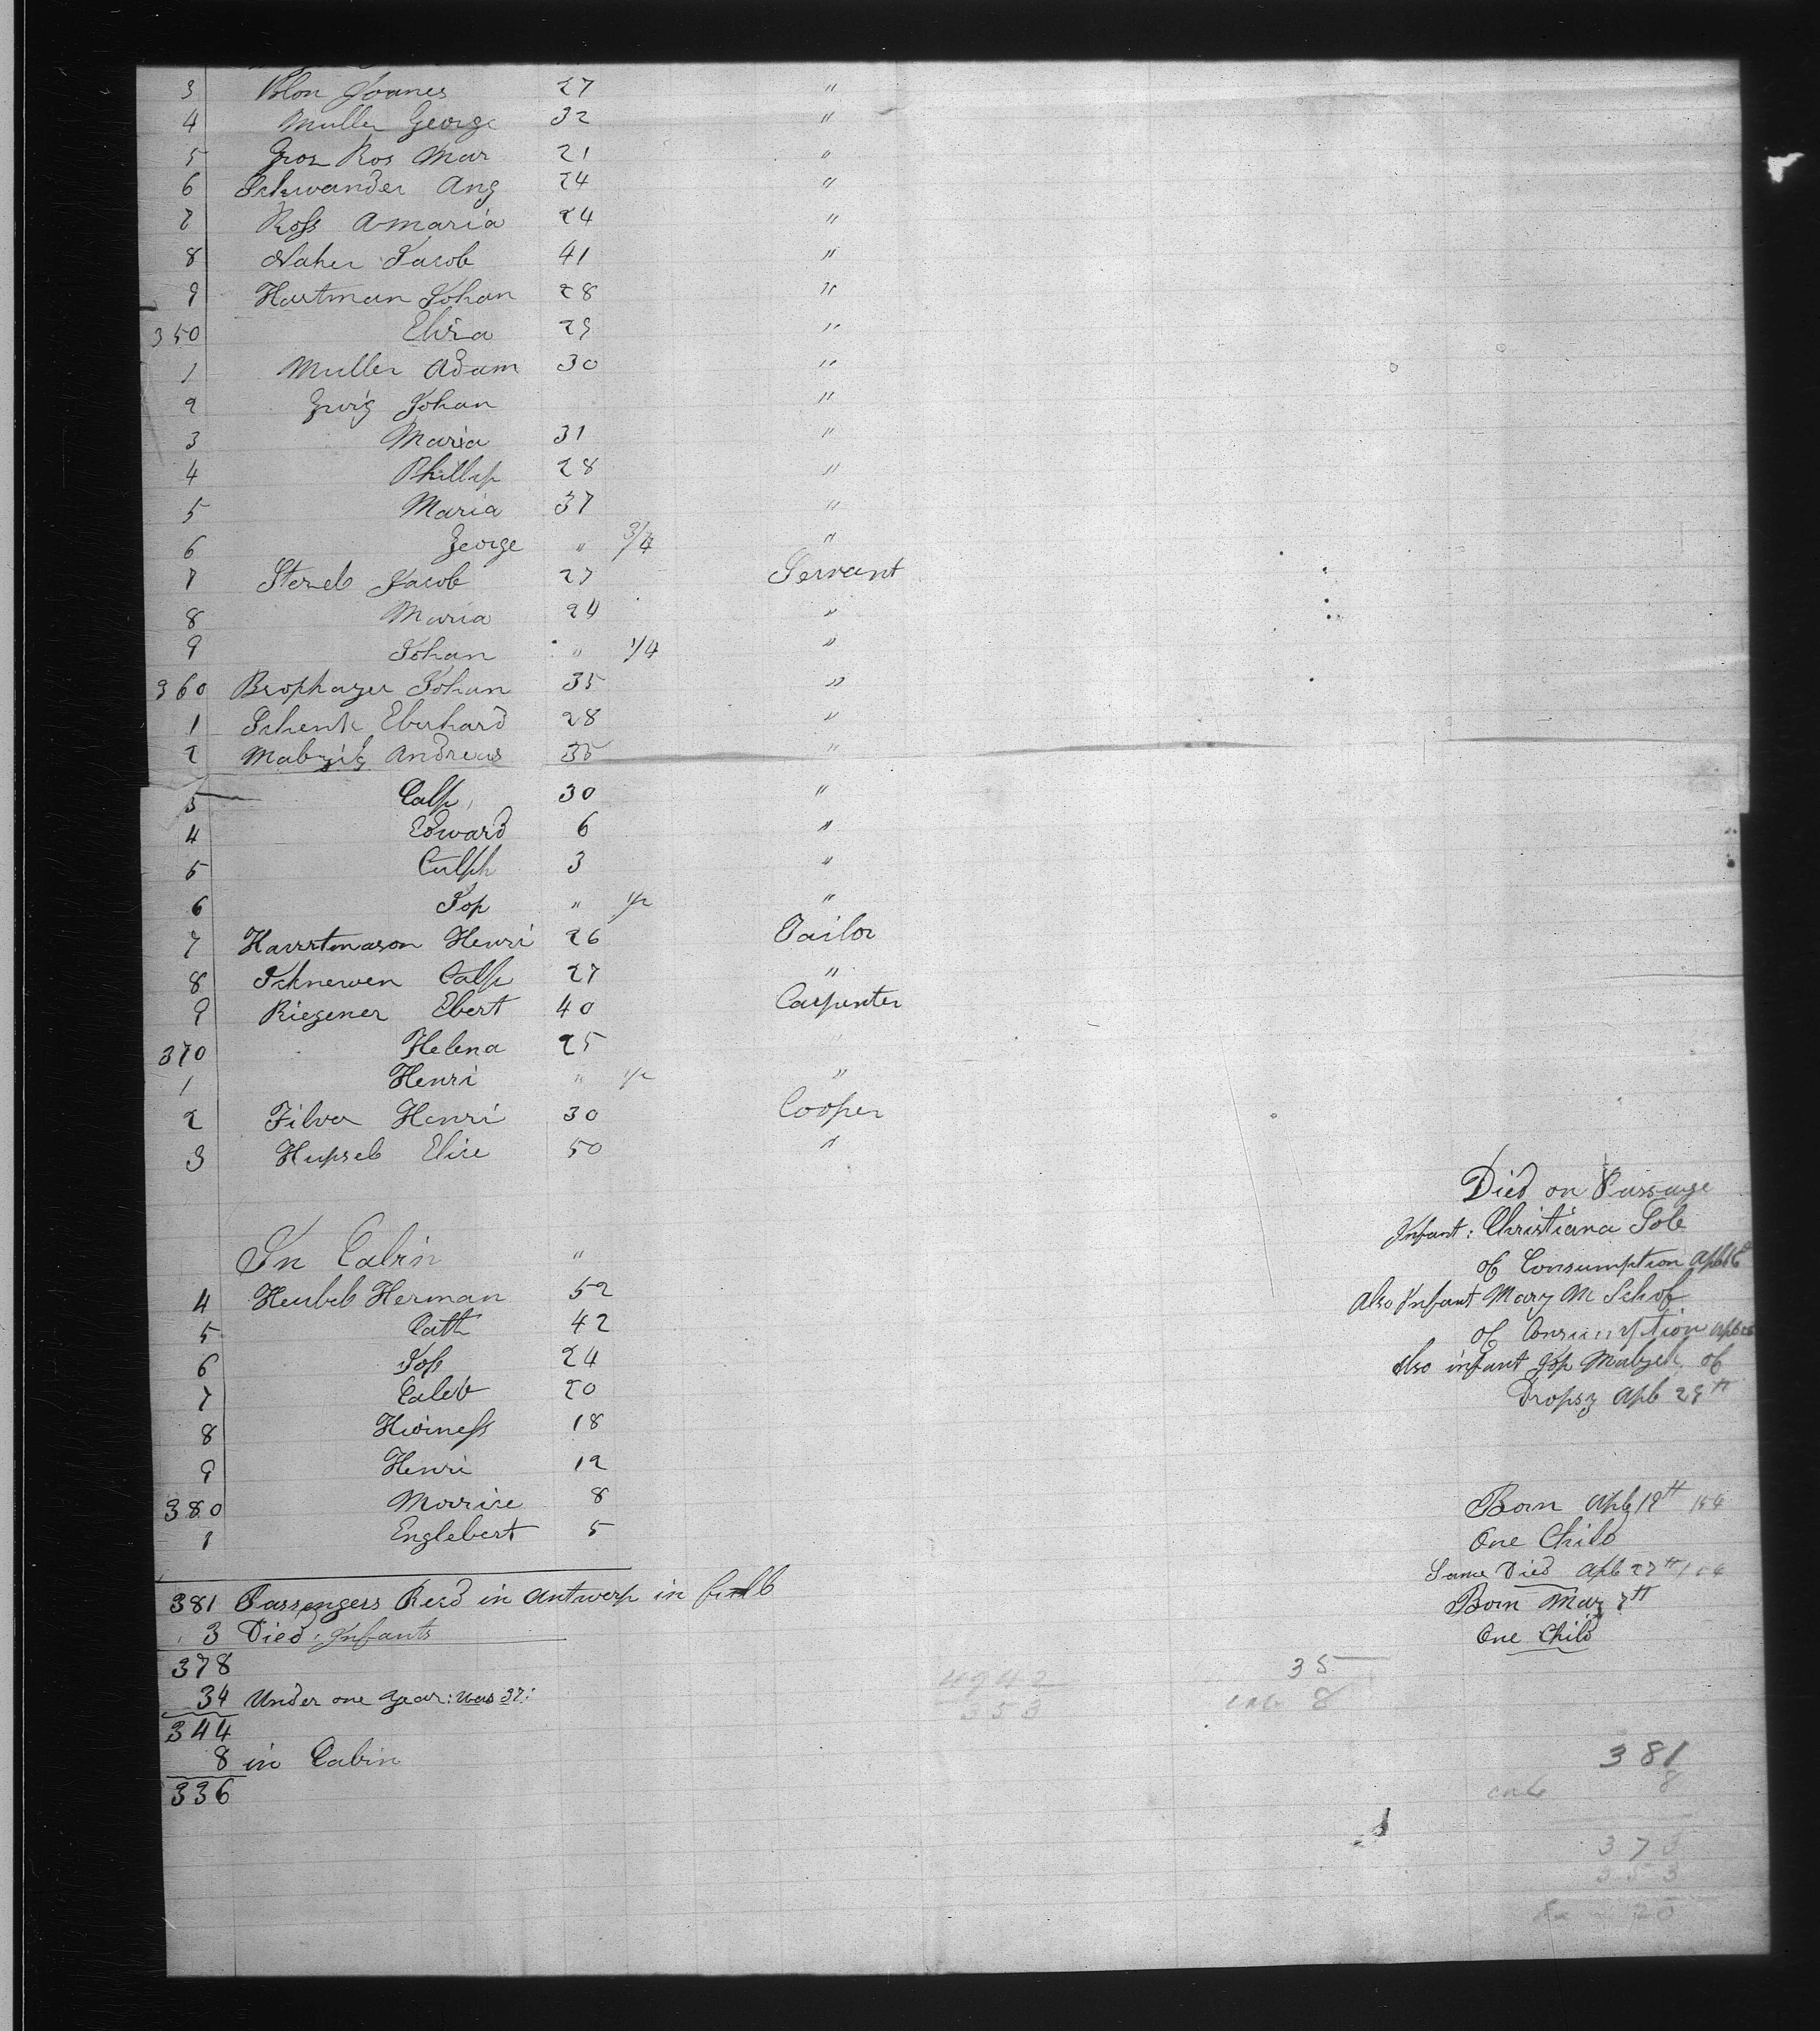 3 Blon Joanes 27 "
4 Muller George 32 "
5 Gros Ros Mar 21 "
6 Schwander Ang 24 "
7 Ross Amaria 24 "
8 Naher Jacob 41 "
9 Hartman Johan 28 "
350 Elisa 25 "
1 Muller Adam 30 "
2 Zwig Johan "
3 Maria 31 "
4 Phillip 28 "
5 Maria 37 "
6 George " 3/4 "
7 Jacob 27 Servant
8 Maria 24 "
9 Johan " 1/4 "
360 Brophazer Johan 35 "
1 Schenk Eberhard 28 "
2 Andreas 35 "
3 30 "
4 Edward 6 "
5 3 "
6 Jop " 1/2 "
7 Henri 26 Tailor
8 Schnewen 27 "
9 Riegener Ebert 40 Carpenter
370 Helena 25
1 Henri " 1/2 "
2 Filver Henri 30 Cooper
3 Elise 50 "
In Cabin "
4 Herman 52
5 Cath 42
6 Jop 24
7 Caleb 20
8 18
9 Henri 12
380 Morrise 8
1 Englebert 5
381 Passengers Recd in Antwerp in
3 Died: Infants
378
34 Under one year: was 37:
344
8 in Cabin
336
Died on Passage
Infant: Christiana
of Consumption
Also Infant Mary M Schof
of Consumption
also infant Jop of
Dropsy Apl 29th
Born Apl 19th
One Child
Same Died Apl 27th
Born May 7th
One Child
4942
353
35
8
381
8
373
353
20